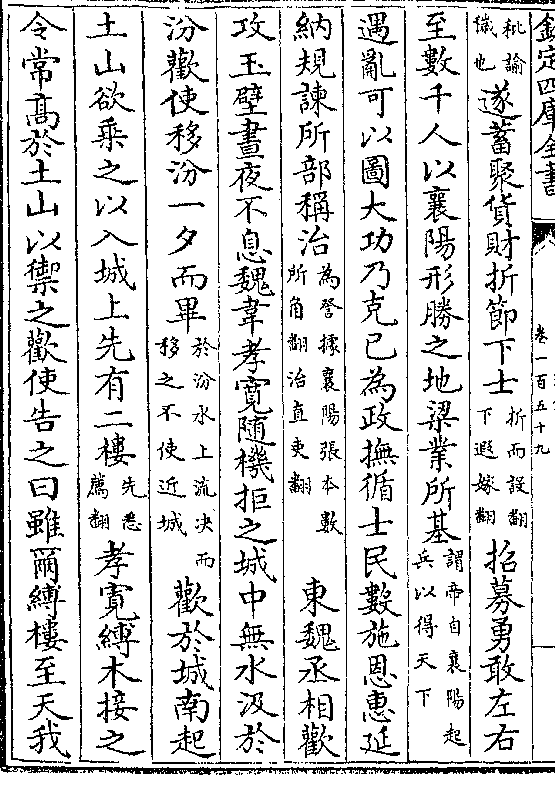 欽定四庫全書
卷一百五十九
秕諭
也
遂蓄聚貨財折節下士折而設翻下遐嫁翻招募勇敢左右
至數千人以襄陽形勝之地梁業所基謂帝自襄陽起兵以得天下
遇亂可以圖大功乃克己為政撫循士民數施恩惠延
納規諫所部稱治為詧據襄陽張本數所角翻治直吏翻東魏丞相歡
攻玉壁晝夜不息魏韋孝寛随機拒之城中無水汲於
汾歡使移汾一夕而畢於汾水上流決而移之不使近城歡於城南起
土山欲乗之以入城上先有二樓先悉薦翻孝寛縛木接之
令常髙於土山以禦之歡使告之曰雖爾縛樓至天我